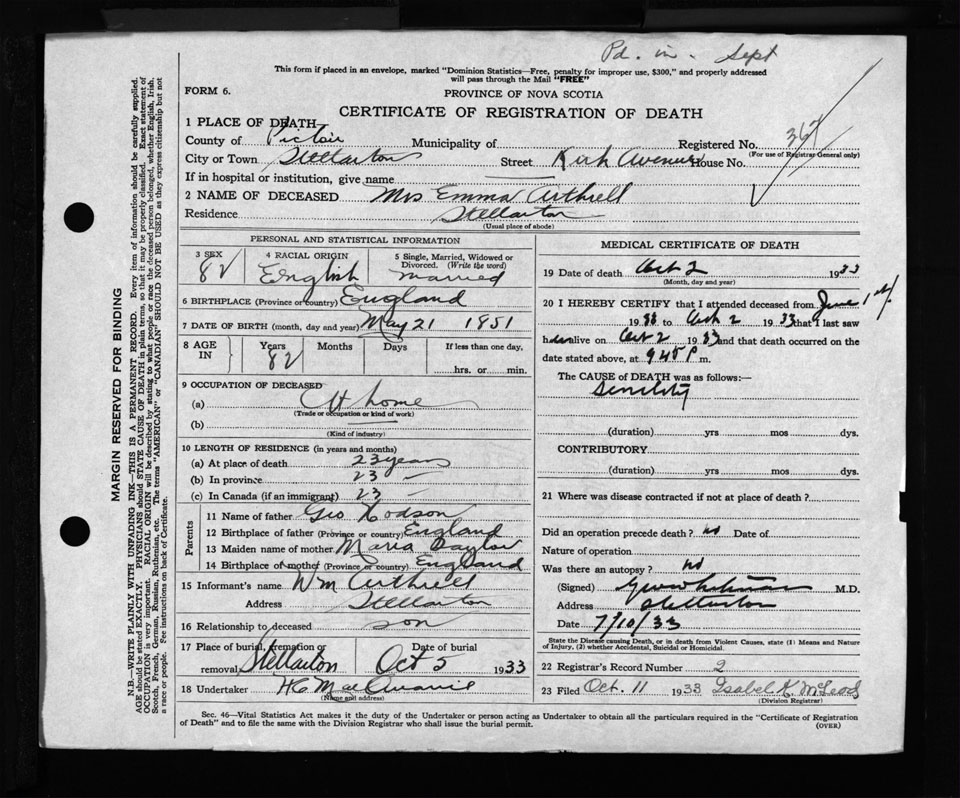 Pd. in. Sept
This form if placed in an envelope, marked "Dominion Statistics—Free, penalty for improper use, $300," and properly addressed
will pass through the Mail "FREE"
FORM 6.
PROVINCE OF NOVA SCOTIA
CERTIFICATE OF REGISTRATION OF DEATH
1 PLACE OF DEATH—
County of Pictou Municipality of Registered No. 367
(For use of Registrar General only)
City or Town Stellarton Street Kirk Avenue House No.
If in hospital or institution, give name
2 NAME OF DECEASED Mrs Emma Cuthrell
Residence Stellarton
(Usual place of abode)
PERSONAL AND STATISTICAL INFORMATION
3 SEX 4 RACIAL ORIGIN English 5 Single, Married, Widowed or Divorced. (Write the word) Married
6 BIRTHPLACE (Province or country) England
7 DATE OF BIRTH (month, day and year) May 21 1851
8 AGE IN Years 82 Months Days If less than one day, hrs. or min.
9 OCCUPATION OF DECEASED
(a) At home
(Trade or occupation or kind of work)
(b)
(Kind of industry)
10 LENGTH OF RESIDENCE (in years and months)
(a) At place of death 23 years
(b) In province 23 —
(c) In Canada (if an immigrant) 23 —
Parents
11 Name of father Geo Hodson
12 Birthplace of father (Province or country) England
13 Maiden name of mother Maria Taylor
14 Birthplace of mother (Province or country) England
15 Informant's name Wm Cuthrell
Address Stellarton
16 Relationship to deceased son
17 Place of burial, cremation or removal Stellarton Date of burial Oct 5 1933
18 Undertaker H C Mac
(Name and address)
MEDICAL CERTIFICATE OF DEATH
19 Date of death Oct 2 1933
(Month, day and year)
20 I HEREBY CERTIFY that I attended deceased from June 1st
1933 to Oct 2 1933 that I last saw
her alive on Oct 2 1933 and that death occurred on the
date stated above, at 9 45 P m.
The CAUSE OF DEATH was as follows:—
Senility
(duration) yrs mos dys.
CONTRIBUTORY
(duration) yrs mos dys.
21 Where was disease contracted if not at place of death?
Did an operation precede death? no Date of
Nature of operation
Was there an autopsy? no
(Signed) M.D.
Address Stellarton
Date 7/10/33
State the Disease causing Death, or in death from Violent Causes, state (1) Means and Nature
of Injury, (2) whether Accidental, Suicidal or Homicidal.
22 Registrar's Record Number 2
23 Filed Oct. 11 1933 Isabel K. McLeod
(Division Registrar)
Sec. 46—Vital Statistics Act makes it the duty of the Undertaker or person acting as Undertaker to obtain all the particulars required in the "Certificate of Registration
of Death" and to file the same with the Division Registrar who shall issue the burial permit.
(OVER)
MARGIN RESERVED FOR BINDING
N.B.—WRITE PLAINLY WITH UNFADING INK—THIS IS A PERMANENT RECORD. Every item of information should be carefully supplied.
AGE should be stated EXACTLY. PHYSICIANS should STATE CAUSE OF DEATH in plain terms, so that it may be properly classified. Exact statement of
OCCUPATION is very important. RACIAL ORIGIN will be described by stating to what people or race the deceased person belonged, whether English, Irish,
Scotch, French, German, Russian, Ruthenian, etc. The terms "AMERICAN" or "CANADIAN" SHOULD NOT BE USED as they express citizenship but not
a race or people. Fee instructions on back of Certificate.